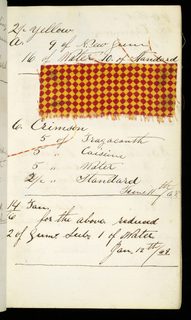 2/p Yellow
a. 9 of New Gum
16 of Water 10 of Standard
6. Crimson
5 of Tragacanth
5 " Caisine
5 " Water
2/p " Standard
June 11th/68
14 Jan
6 for the above reduced
2 of Gum Sub. 1 of Water
Jan 12th/68